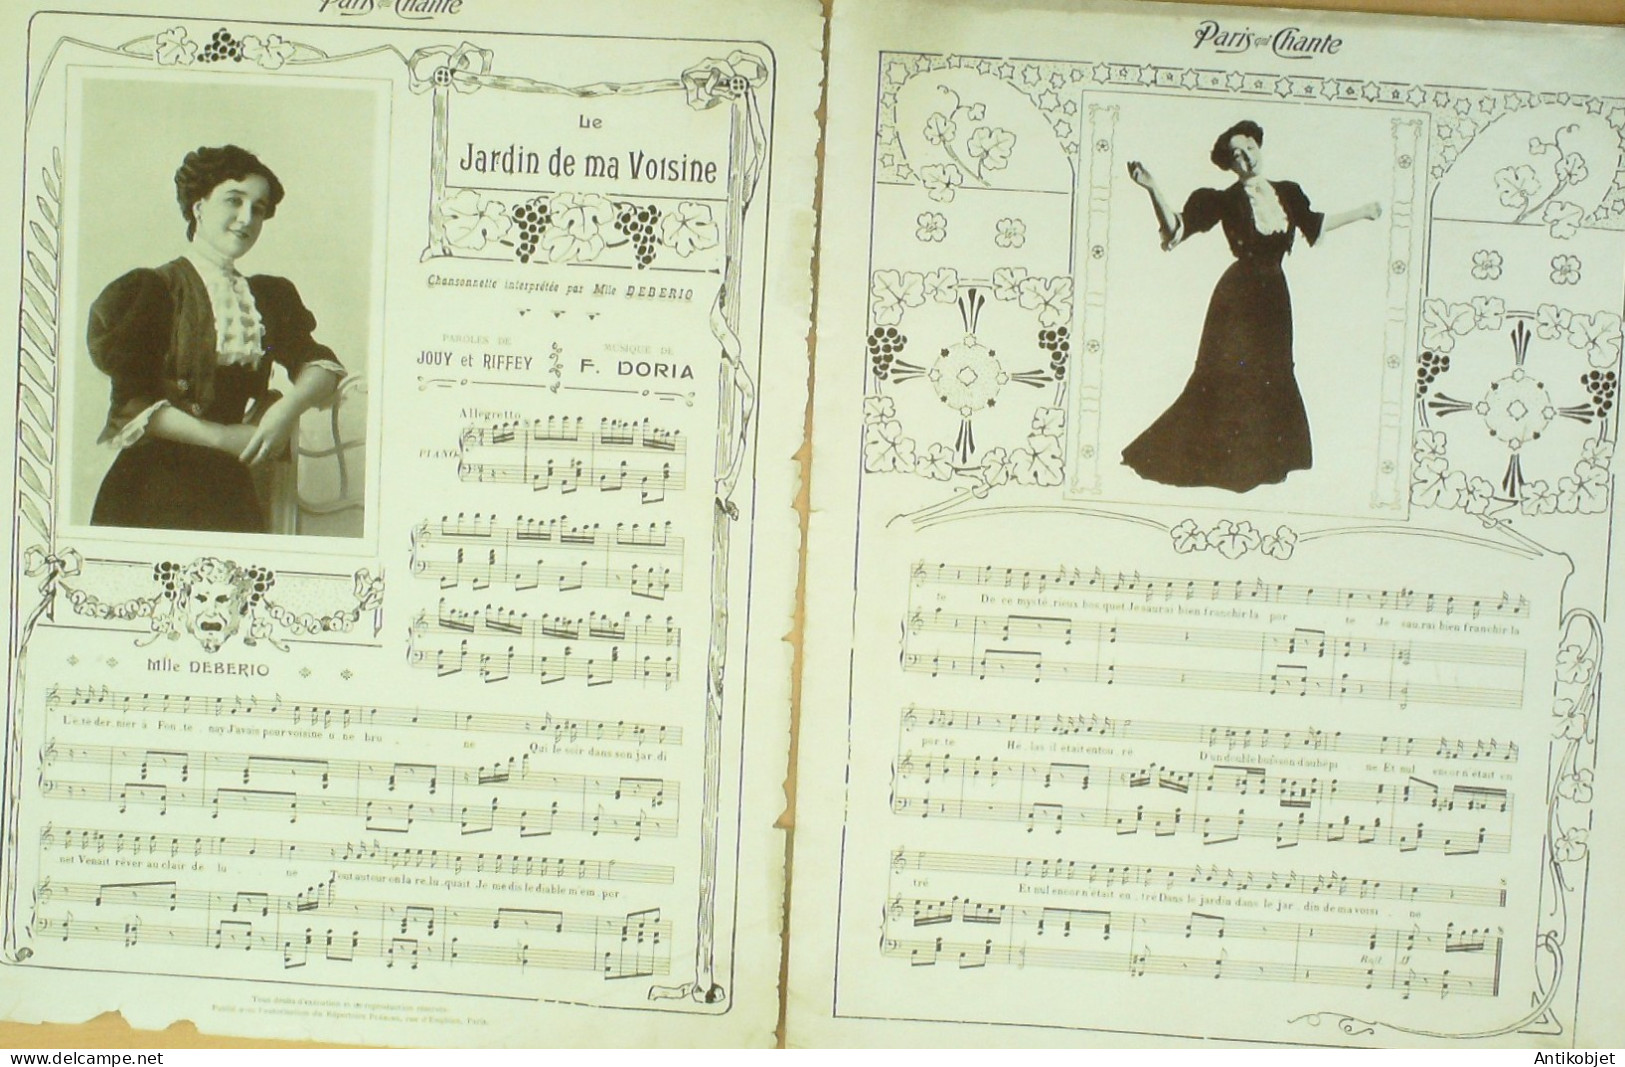 Paris qui Chante
Le
Jardin de ma Voisine
Chansonnette interprétée par Mlle DEBERIO
PAROLES DE
JOUY et RIFFEY
MUSIQUE DE
F. DORIA
Allegretto
PIANO
Mlle DEBERIO
L'é.té der.nier à Fon.te. nay J'avais pour voisine u.ne bru. ne Qui le soir dans son jar.di
net Venait rêver au clair de lu. ne Tout autour on la re.lu.quait Je me dis le diable m'em.por.
Tous droits d'exécution et de reproduction réservés.
Paris qui Chante
te De ce mysté.rieux bos.quet Je saurai bien franchir la por te Je sau.rai bien franchir la
por.te Hé.las il était entou.ré D'un double buisson d'aubépi. ne Et nul encor n'était en
tré Et nul encor n'était en.tré Dans le jardin dans le jar. din de ma voisi. ne
Rall. ff
Antikobjet